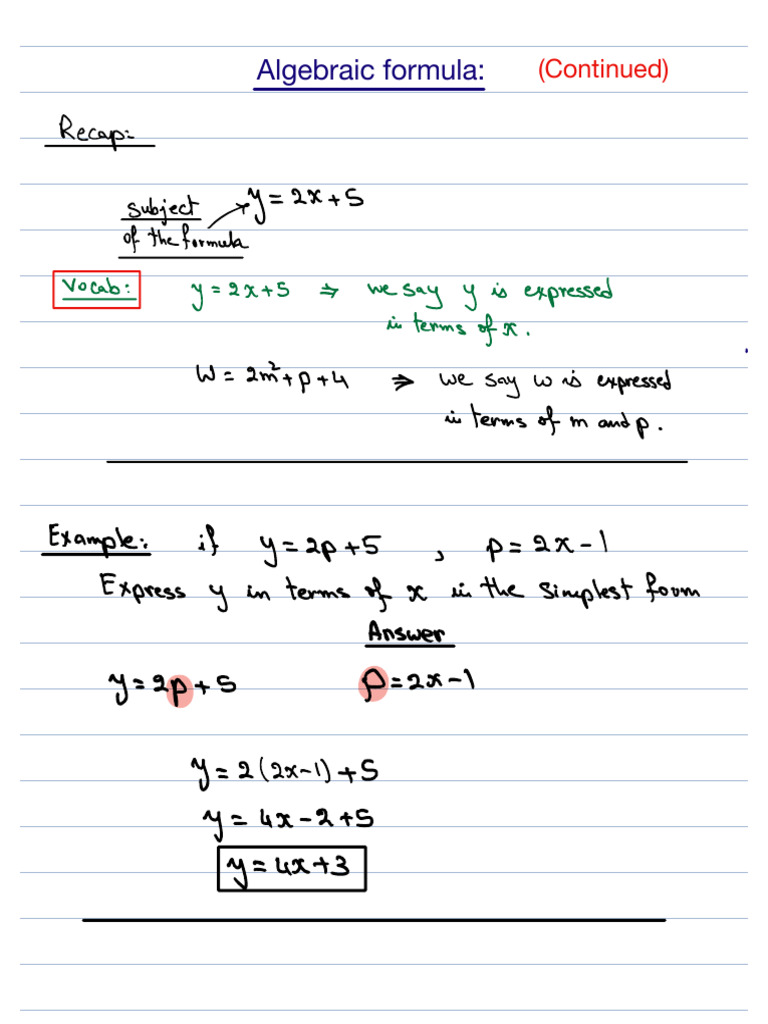 Algebraic formula: (Continued)
Recap:
y = 2x + 5
subject
of the formula
Vocab: y = 2x + 5 ⇒ we say y is expressed
in terms of x.
W = 2m² + p + 4 ⇒ we say w is expressed
in terms of m and p.
Example: if y = 2p + 5 , p = 2x - 1
Express y in terms of x in the simplest form
Answer
y = 2p + 5 p = 2x - 1
y = 2(2x-1) + 5
y = 4x - 2 + 5
y = 4x + 3